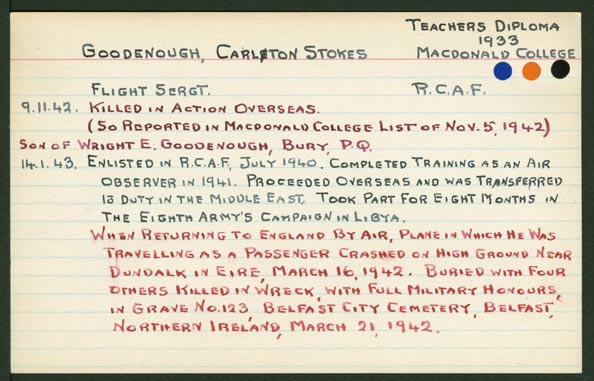 TEACHERS DIPLOMA
1933
GOODENOUGH, CARLETON STOKES MACDONALD COLLEGE
FLIGHT SERGT. R.C.A.F.
9.11.42. KILLED IN ACTION OVERSEAS.
(SO REPORTED IN MACDONALD COLLEGE LIST OF NOV. 5, 1942)
SON OF WRIGHT E. GOODENOUGH, BURY, P.Q.
14.1.43. ENLISTED IN R.C.A.F, JULY 1940. COMPLETED TRAINING AS AN AIR
OBSERVER IN 1941. PROCEEDED OVERSEAS AND WAS TRANSFERRED
TO DUTY IN THE MIDDLE EAST. TOOK PART FOR EIGHT MONTHS IN
THE EIGHTH ARMY'S CAMPAIGN IN LIBYA.
WHEN RETURNING TO ENGLAND BY AIR, PLANE IN WHICH HE WAS
TRAVELLING AS A PASSENGER CRASHED ON HIGH GROUND NEAR
DUNDALK IN EIRE, MARCH 16, 1942. BURIED WITH FOUR
OTHERS KILLED IN WRECK, WITH FULL MILITARY HONOURS,
IN GRAVE NO. 123, BELFAST CITY CEMETERY, BELFAST,
NORTHERN IRELAND, MARCH 21, 1942.